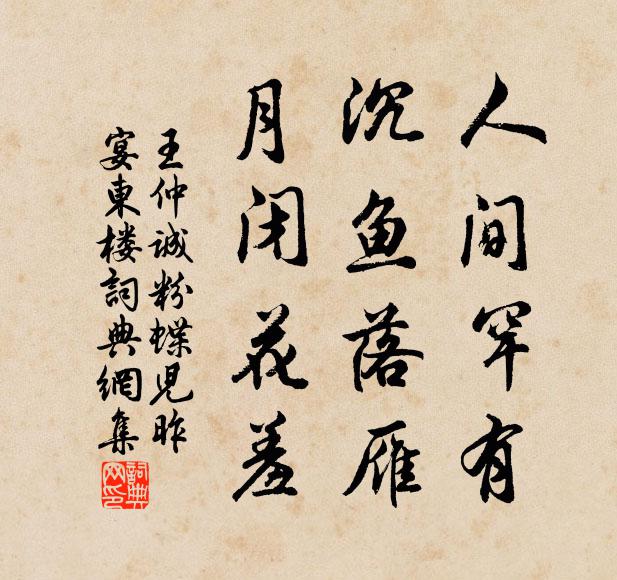 人间罕有
沉鱼落雁
月闭花羞
王仲诚粉蝶儿昨
宴東楼詞典網集
詞典网印